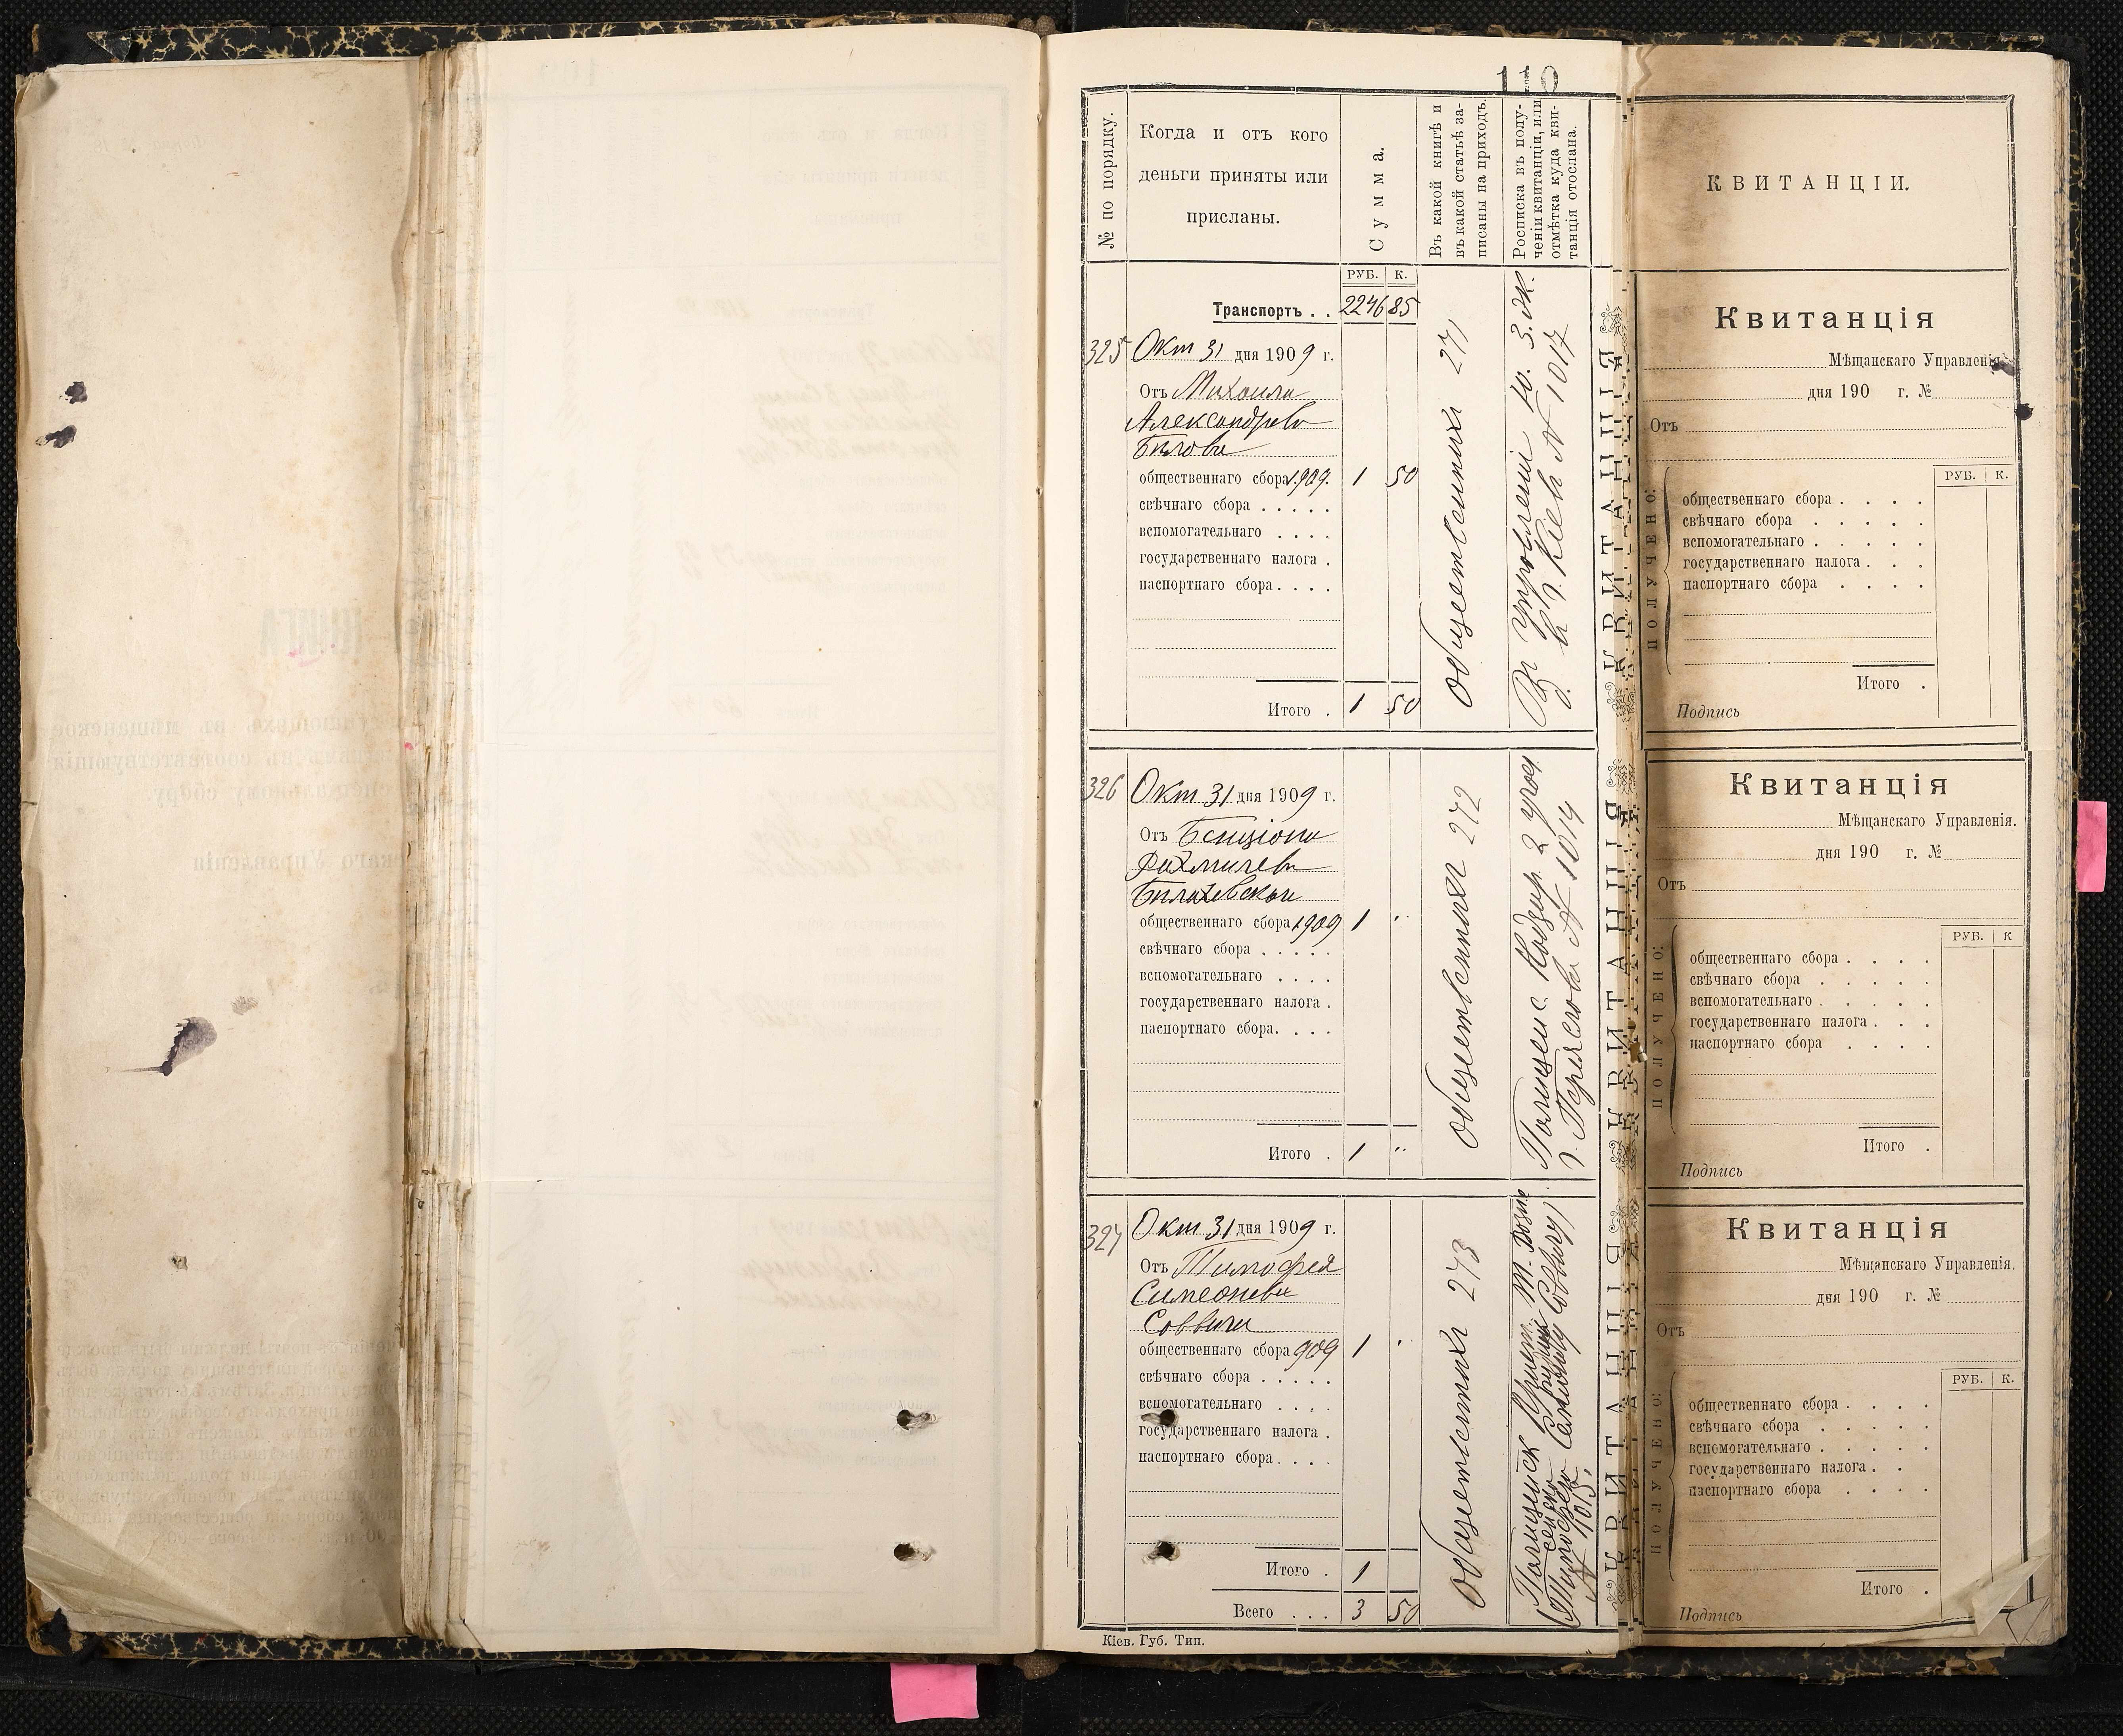 110
№ по порядку.
Когда и отъ кого
деньги приняты или
присланы.
Сумма.
Въ какой книгѣ и
въ какой статьѣ за-
писаны на приходъ.
Росписка въ полу-
ченіи квитанціи, или
отмѣтка куда кви-
танція отослана.
РУБ. К.
Транспортъ . . 2246 85
325 Окт 31 дня 1909 г.
Отъ Михаила
Александрова
Бѣлова
общественнаго сбора 1909. 1 50
свѣчнаго сбора . . . . .
вспомогательнаго . . . .
государственнаго налога .
паспортнаго сбора . . . .
Итого . 1 50
Общественная 271
Въ Управленіи Ю. З. ж.
д. въ г. Кіевъ № 1017
326 Окт 31 дня 1909 г.
Отъ Бенціона
Рахмилева
Билахевскаго
общественнаго сбора 1909 1 "
свѣчнаго сбора . . . . .
вспомогательнаго . . . .
государственнаго налога .
паспортнаго сбора. . . .
Итого . 1 "
Общественная 272
Полицейс. Надзир. 2 уч
г. Переяслова № 1014
327 Окт 31 дня 1909 г.
Отъ Тимофея
Симеонова
Саввича
общественнаго сбора 909 1 "
свѣчнаго сбора . . . . .
вспомогательнаго . . . .
государственнаго налога .
паспортнаго сбора . . . .
Итого . 1
Всего . . . 3 50
Общественная 273
Полицейск
Тимофею Саввичу
№ 1015.
Кіев. Губ. Тип.
КВИТАНЦІЯ
КВИТАНЦІЯ
КВИТАНЦІЯ
КВИТАНЦІИ.
Квитанція
Мѣщанскаго Управленія
дня 190 г. №
Отъ
РУБ. К.
ПОЛУЧЕНО:
общественнаго сбора . . . .
свѣчнаго сбора . . . . .
вспомогательнаго . . . . .
государственнаго налога . . .
паспортнаго сбора . . . .
Итого .
Подпись
Квитанція
Мѣщанскаго Управленія.
дня 190 г. №
Отъ
РУБ. К
ПОЛУЧЕНО:
общественнаго сбора . . . .
свѣчнаго сбора . . . . .
вспомогательнаго . . . . .
государственнаго налога . . .
паспортнаго сбора . . . .
Итого .
Подпись
Квитанція
Мѣщанскаго Управленія.
дня 190 г. №
Отъ
РУБ. К.
ПОЛУЧЕНО:
общественнаго сбора . . . .
свѣчнаго сбора . . . . .
вспомогательнаго . . . . .
государственнаго налога . .
паспортнаго сбора . . . .
Итого .
Подпись